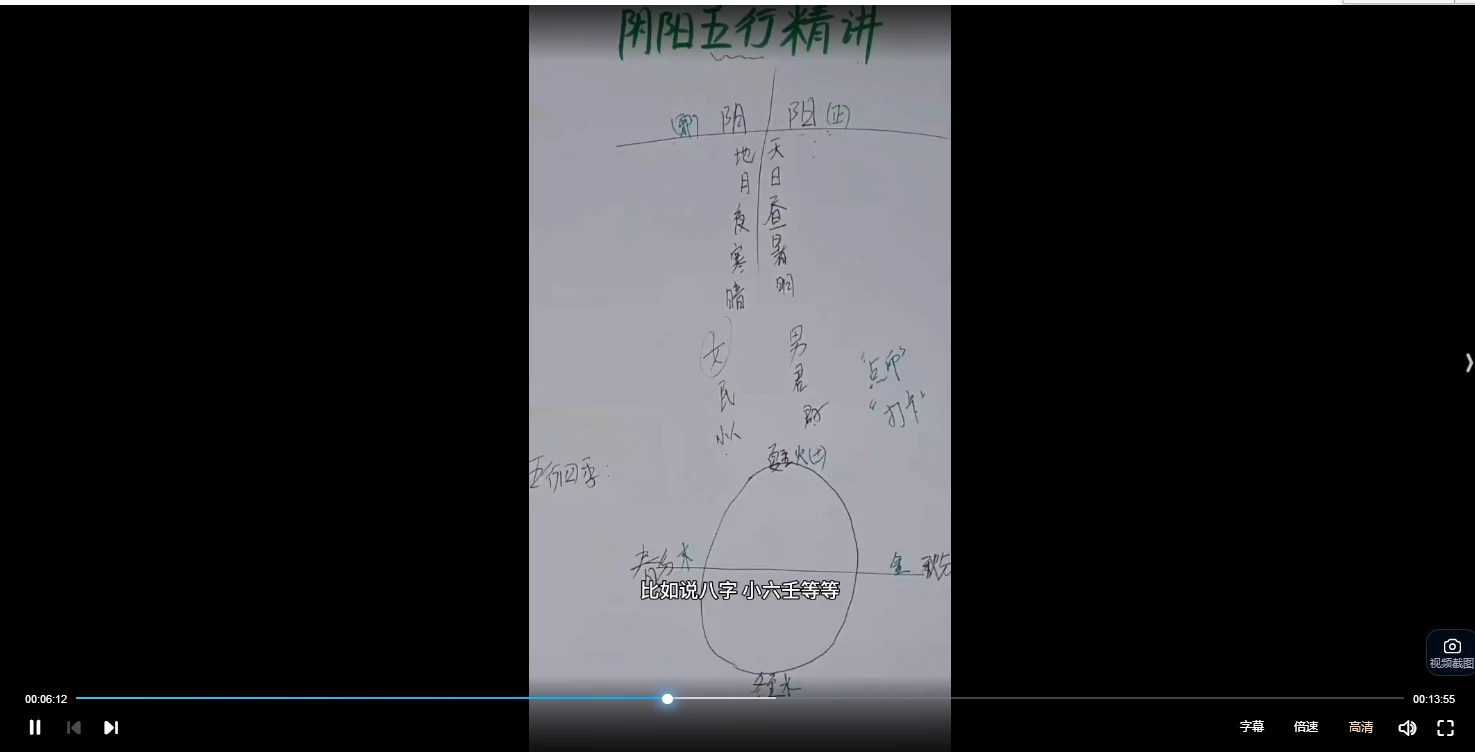 阴阳五行精讲
(邪) 阴 阳 (正)
地 天
月 日
夜 昼
寒 暑
暗 明
女 男
民 君
小人
“点卯”
“打卡”
五行四季:
夏至火(土)
春分木
金 秋分
比如说八字 小六壬等等
冬至水
视频截图
00:06:12
00:13:55
字幕 倍速 高清